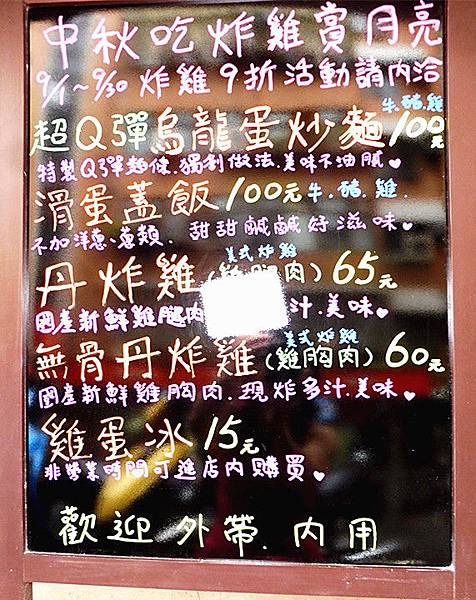 中秋吃炸雞賞月亮
9/1~9/30 炸雞9折活動請內洽
牛.豬.雞
超Q彈烏龍蛋炒麵100元
特製Q彈麵條.獨制做法.美味不油膩♥
滑蛋蓋飯100元牛.豬.雞.
不加洋蔥、蔥類.甜甜鹹鹹好滋味♥
美式炸雞
丹炸雞(雞腿肉)65元
國產新鮮雞腿肉 汁.美味♥
美式炸雞
無骨丹炸雞(雞胸肉)60元
國產新鮮雞胸肉.現炸多汁.美味♥
雞蛋冰15元
非營業時間可進店內購買♥
歡迎外帶.內用